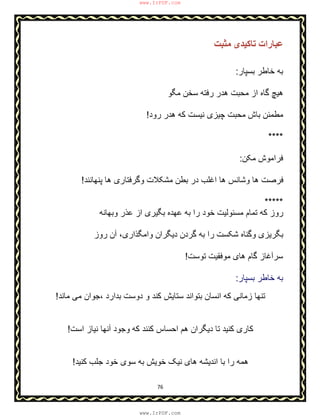 www.IrPDF.com
عبارات تاکیدی مثبت
به خاطر بسپار:
هیچ گاه از محبت هدر رفته سخن مگو
مطمئن باش محبت چیزی نیست که هدر رود!
****
فراموش مکن:
فرصت ها وشانس ها اغلب در بطن مشکلات وگرفتاری ها پنهانند!
*****
روز که تمام مسئولیت خود را به عهده بگیری از عذر وبهانه
بگریزی وگناه شکست را به گردن دیگران وامگذاری، آن روز
سرآغاز گام های موفقیت توست!
به خاطر بسپار:
تنها زمانی که انسان بتواند ستایش کند و دوست بدارد ،جوان می ماند!
کاری کنید تا دیگران هم احساس کنند که وجود آنها نیاز است!
همه را با اندیشه های نیک خویش به سوی خود جلب کنید!
76
www.IrPDF.com